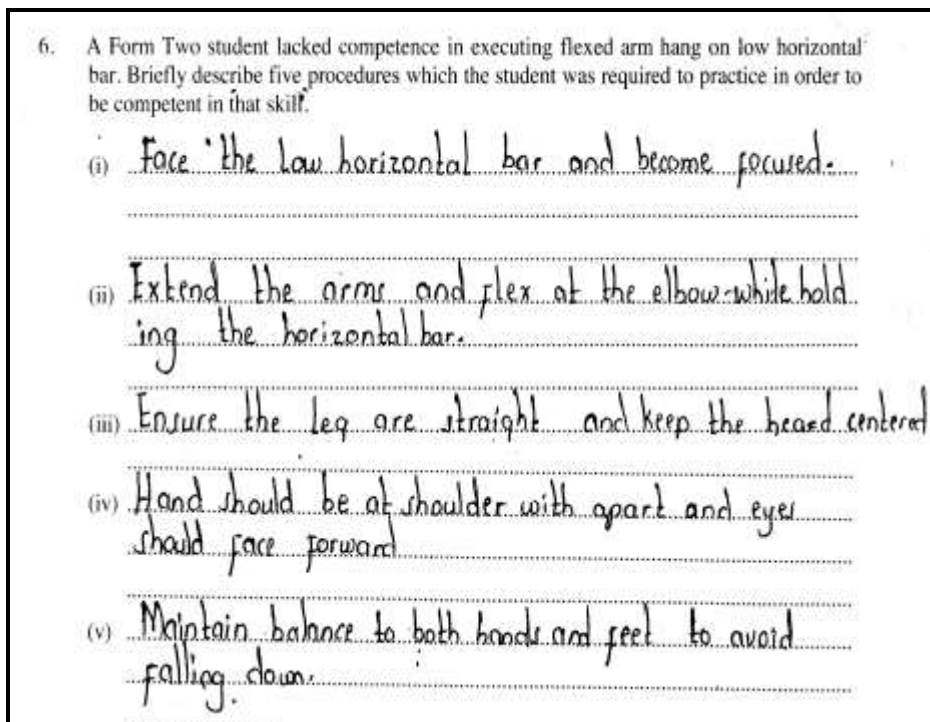 6. A Form Two student lacked competence in executing flexed arm hang on low horizontal
bar. Briefly describe five procedures which the student was required to practice in order to
be competent in that skill.
(i) Face the low horizontal bar and become focused.
(ii) Extend the arms and flex at the elbow while hold
ing the horizontal bar.
(iii) Ensure the leg are straight and keep the heard centered
(iv) Hand should be at shoulder with apart and eyes
should face forward
(v) Maintain balance to both hands and feet to avoid
falling down.